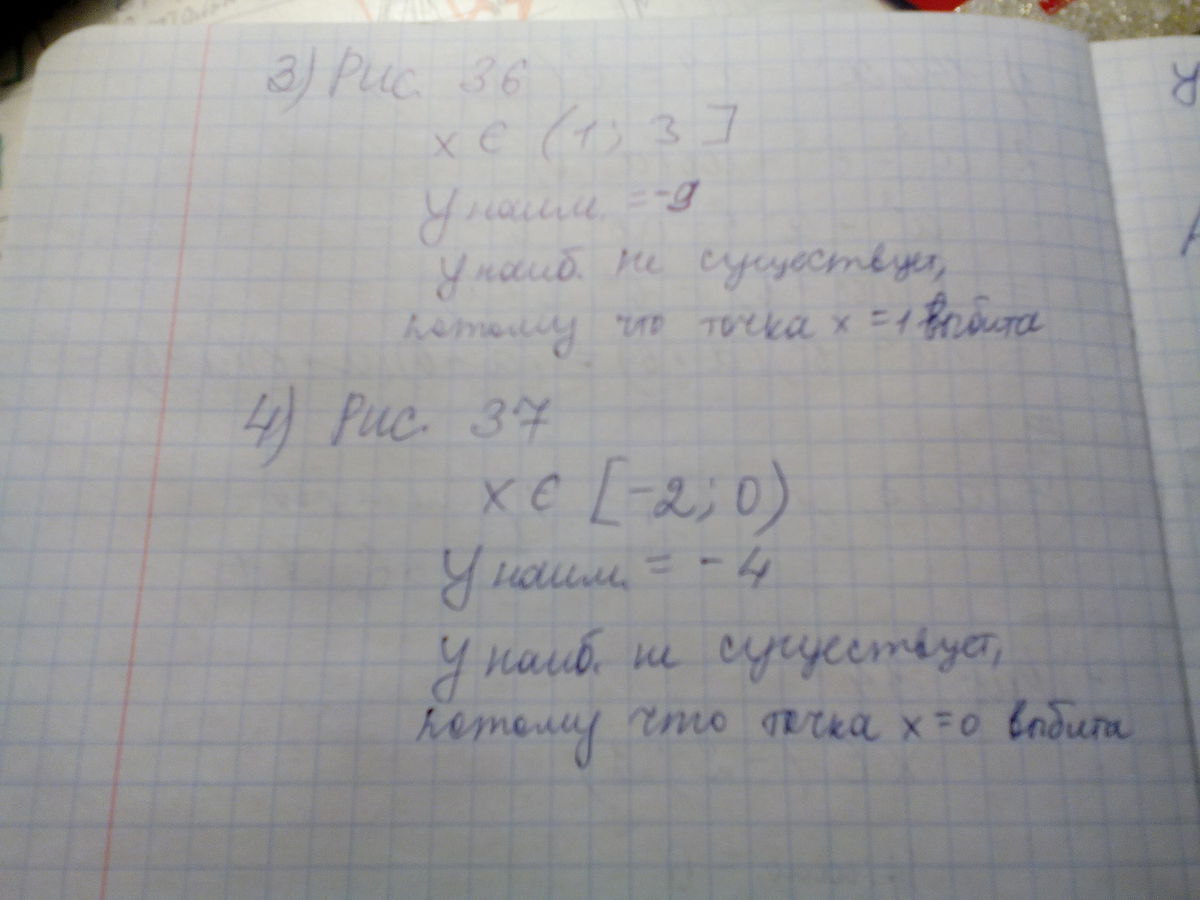 3) Рис. 36
x ∈ (1; 3]
У наим. = -9
У наиб. не существует,
потому что точка x = 1 выбита
4) Рис. 37
x ∈ [-2; 0)
У наим. = - 4
У наиб. не существует,
потому что точка x = 0 выбита